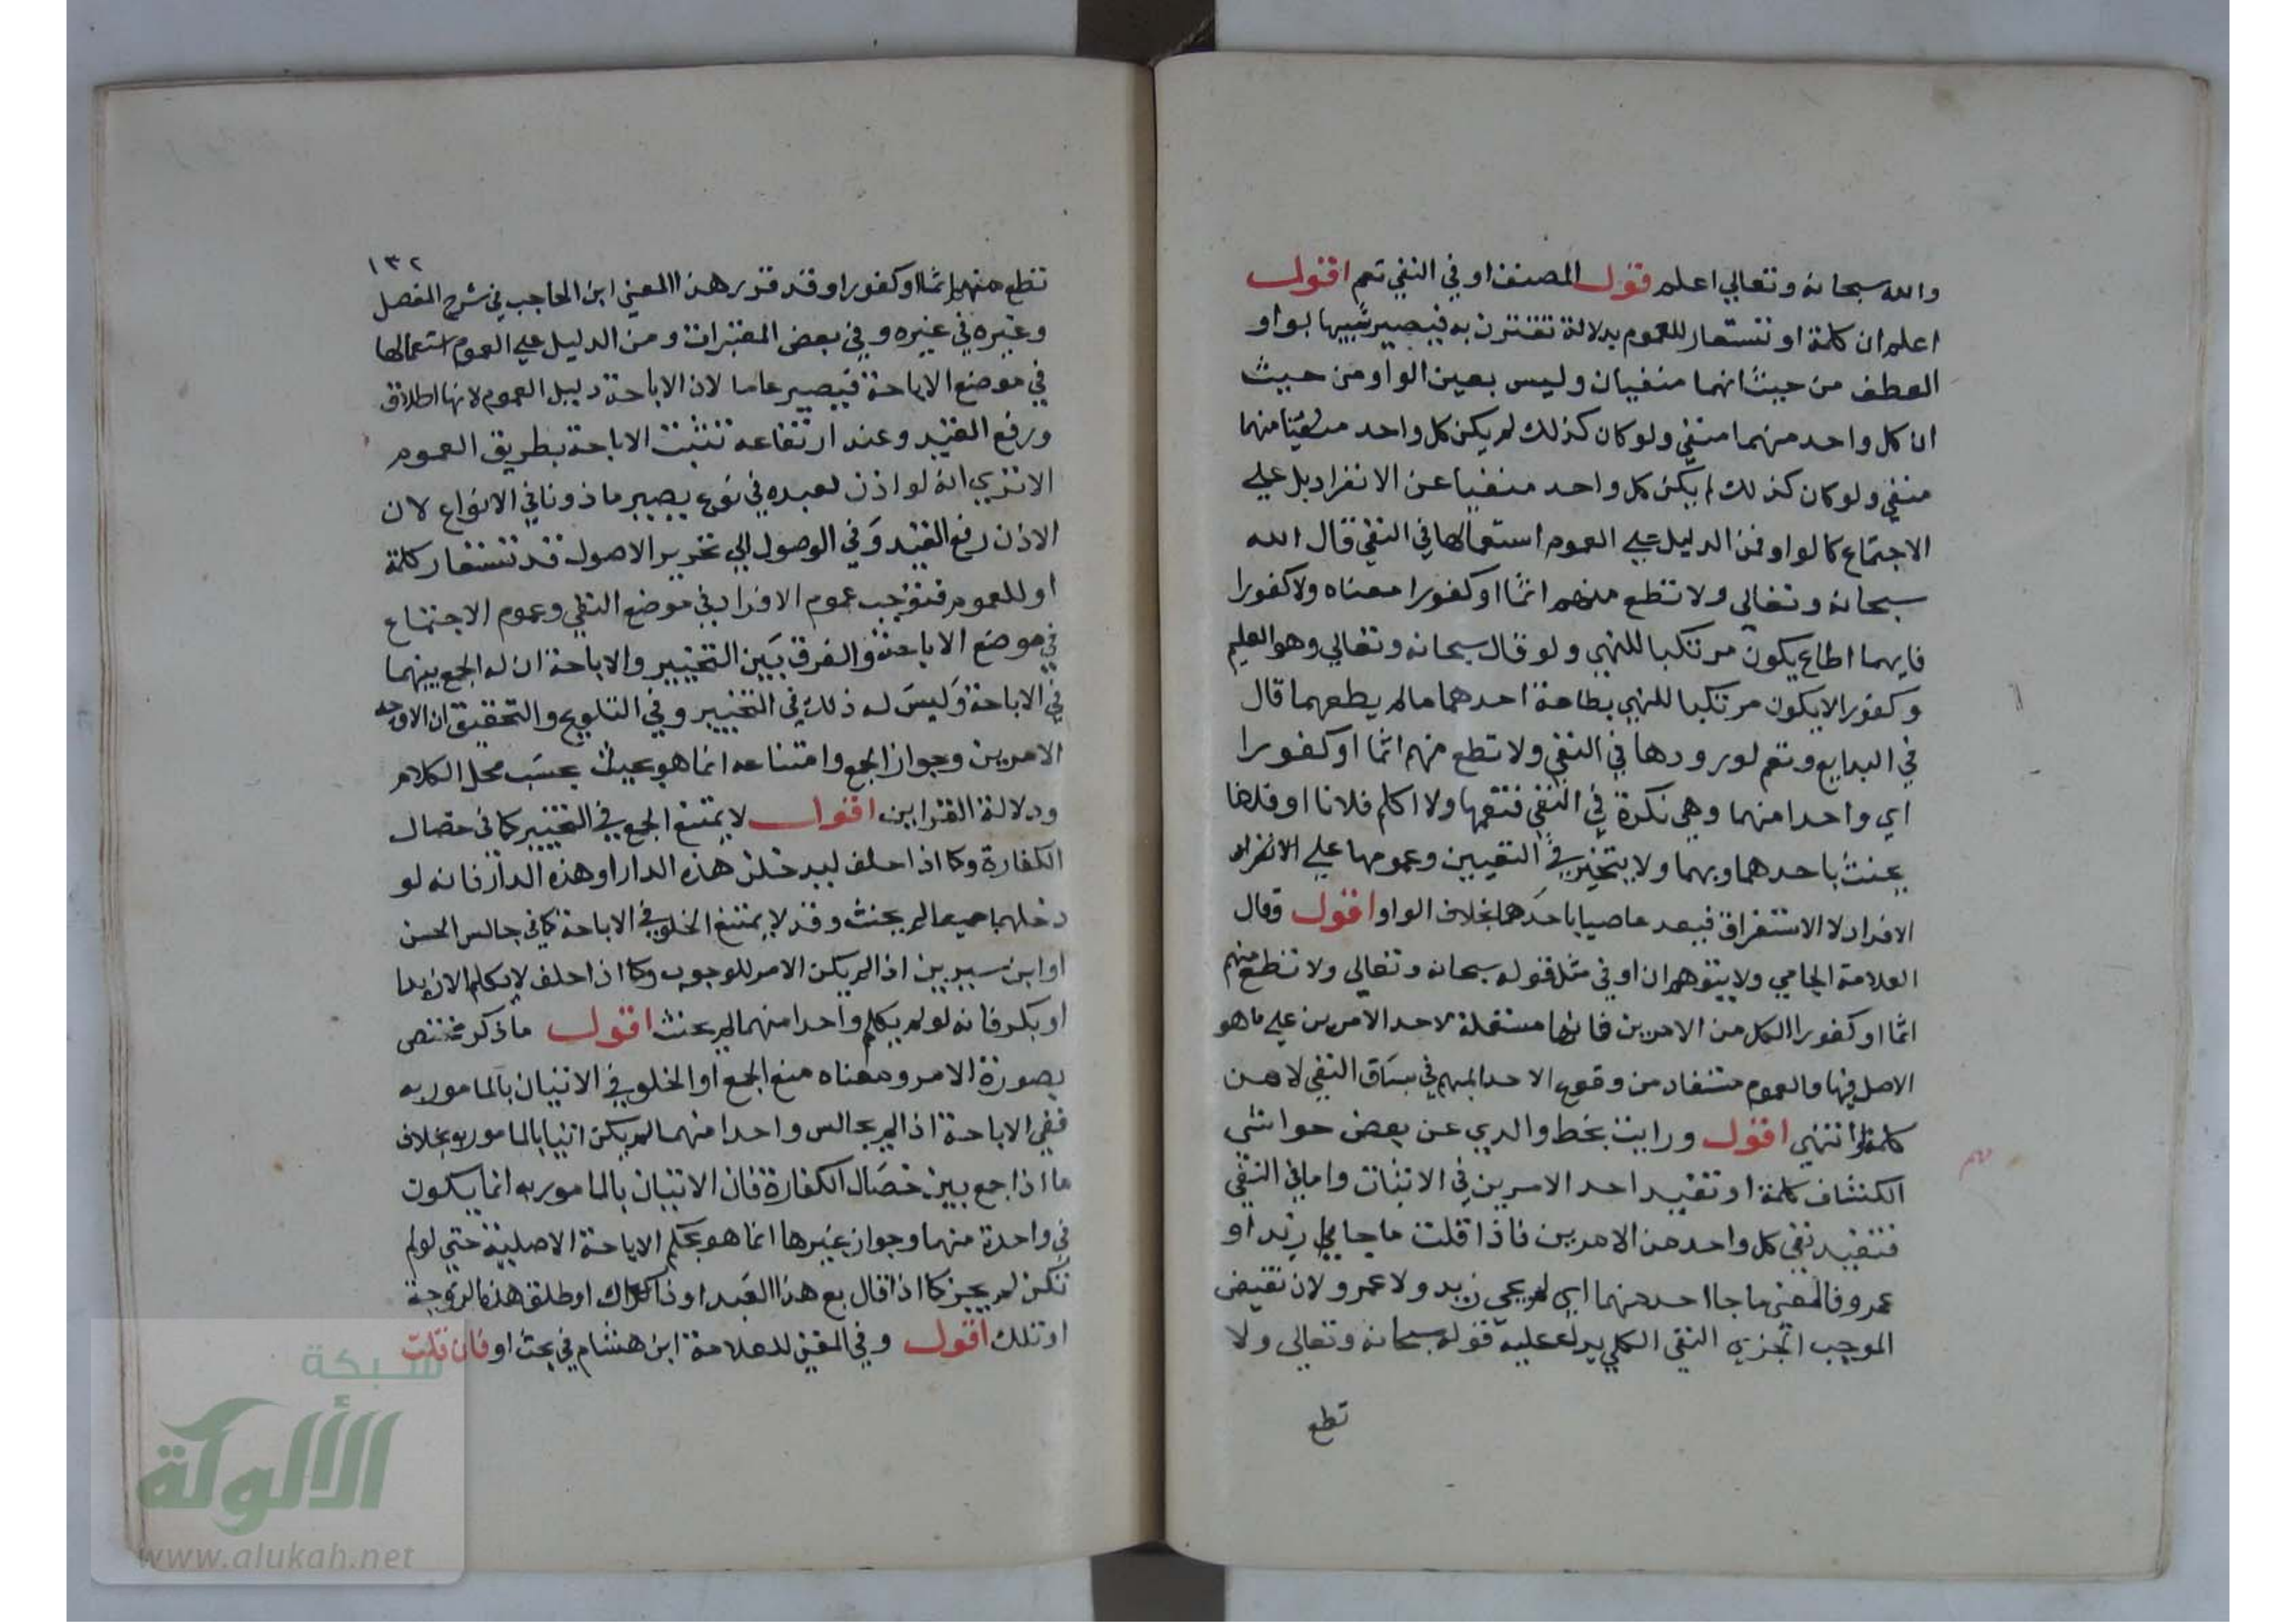 والله سبحانه وتعالي اعلم قول المصنف او في النفي تعم اقول
اعلم ان كلمة او تستعار للعموم بدلالة تقترن به فيصير شبيها بواو
العطف من حيث انهما منفيان وليس بعين الواو من حيث
ان كل واحد منهما منفي ولو كان كذلك لم يكن كل واحد منهما
منفي ولو كان كذلك لم يكن كل واحد منفيا عن الانفراد بل علي
الاجتماع كالواو فمن الدليل علي العموم استعمالها في النفي قال الله
سبحانه وتعالي ولا تطع منهم اثما او كفورا معناه ولا كفورا
فايهما اطاع يكون مرتكبا للنهي ولو قال سبحانه وتعالي وهو العليم
وكفورا لا يكون مرتكبا للنهي بطاعة احدهما مالم يطعهما قال
في البدايع وتعم لورودها في النفي ولا تطع منهم اثما او كفورا
اي واحدا منهما وهي نكرة في النفي فتعمها ولا اكلم فلانا او فلانا
يحنث باحدهما وبهما ولا يتخير في التعيين وعمومها علي الانفراد
الافراد لا الاستغراق فيعد عاصيا باحدهما بخلاف الواو اقول وقال
العلامة الجامي ولا يتوهم ان او في مثل قوله سبحانه وتعالي ولا تطع منهم
اثما او كفورا لكل من الامرين فانها مستعملة لاحد الامرين علي ما هو
الاصل فيها والعموم مستفاد من وقوع الاحد المبهم في سياق النفي لا من
كلمة او انتهي اقول ورايت بخط والدي عن بعض حواشي
الكشاف كلمة او تفيد احد الامرين في الاثبات واما في النفي
فتفيد نفي كل واحد من الامرين فاذا قلت ما جاني زيد او
عمرو فالمعني ما جا احد منهما اي لم يجي زيد ولا عمرو لان نقيض
الموجب الجزي النفي الكلي يدل عليه قوله سبحانه وتعالي ولا
تطع
١٣٢
تطع منهم اثما او كفورا وقد قرر هذا المعني ابن الحاجب في شرح المفصل
وغيره في غيره وفي بعض المعتبرات ومن الدليل علي العموم استعمالها
في موضع الاباحة فيصير عاما لان الاباحة دليل العموم لانها اطلاق
ورفع القيد وعند ارتفاعه تثبت الاباحة بطريق العموم
الا تري انه لو اذن لعبده في نوع يصير ماذونا في الانواع لان
الاذن رفع القيد وفي الوصول الي تحرير الاصول قد تستعار كلمة
او للعموم فتوجب عموم الافراد في موضع النفي وعموم الاجتماع
في موضع الاباحة والفرق بين التخيير والاباحة ان له الجمع بينهما
في الاباحة وليس له ذلك في التخيير وفي التلويح والتحقيق ان الاوجه
الامرين وجواز الجمع وامتناعه انما هو بحسب محل الكلام
ودلالة القراين اقول لا يمتنع الجمع في التخيير كما في خصال
الكفارة وكما اذا حلف ليدخلن هذه الدار او هذه الدار فانه لو
دخلهما جميعا لم يحنث وقد لا يمتنع الخلو في الاباحة كما في جالس الحسن
او ابن سيرين اذا لم يكن الامر للوجوب وكما اذا حلف لا يكلم الا زيدا
او بكر فانه لو لم يكلم واحدا منهما لم يحنث اقول ما ذكر مختص
بصورة الامر ومعناه منع الجمع او الخلو في الاتيان بالمامور به
ففي الاباحة اذا لم يجالس واحدا منهما لم يكن اتيا بالمامور به بخلاف
ما اذا جمع بين خصال الكفارة فان الاتيان بالمامور به انما يكون
في واحدة منهما وجواز غيرها انما هو بحكم الاباحة الاصلية حتي لو لم
تكن لم يجز كما اذا قال بع هذا العبد او ذاك او طلق هذه الزوجة
او تلك اقول وفي المغني للعلامة ابن هشام في بحث او فان قلت
شبكة
الألوكة
www.alukah.net